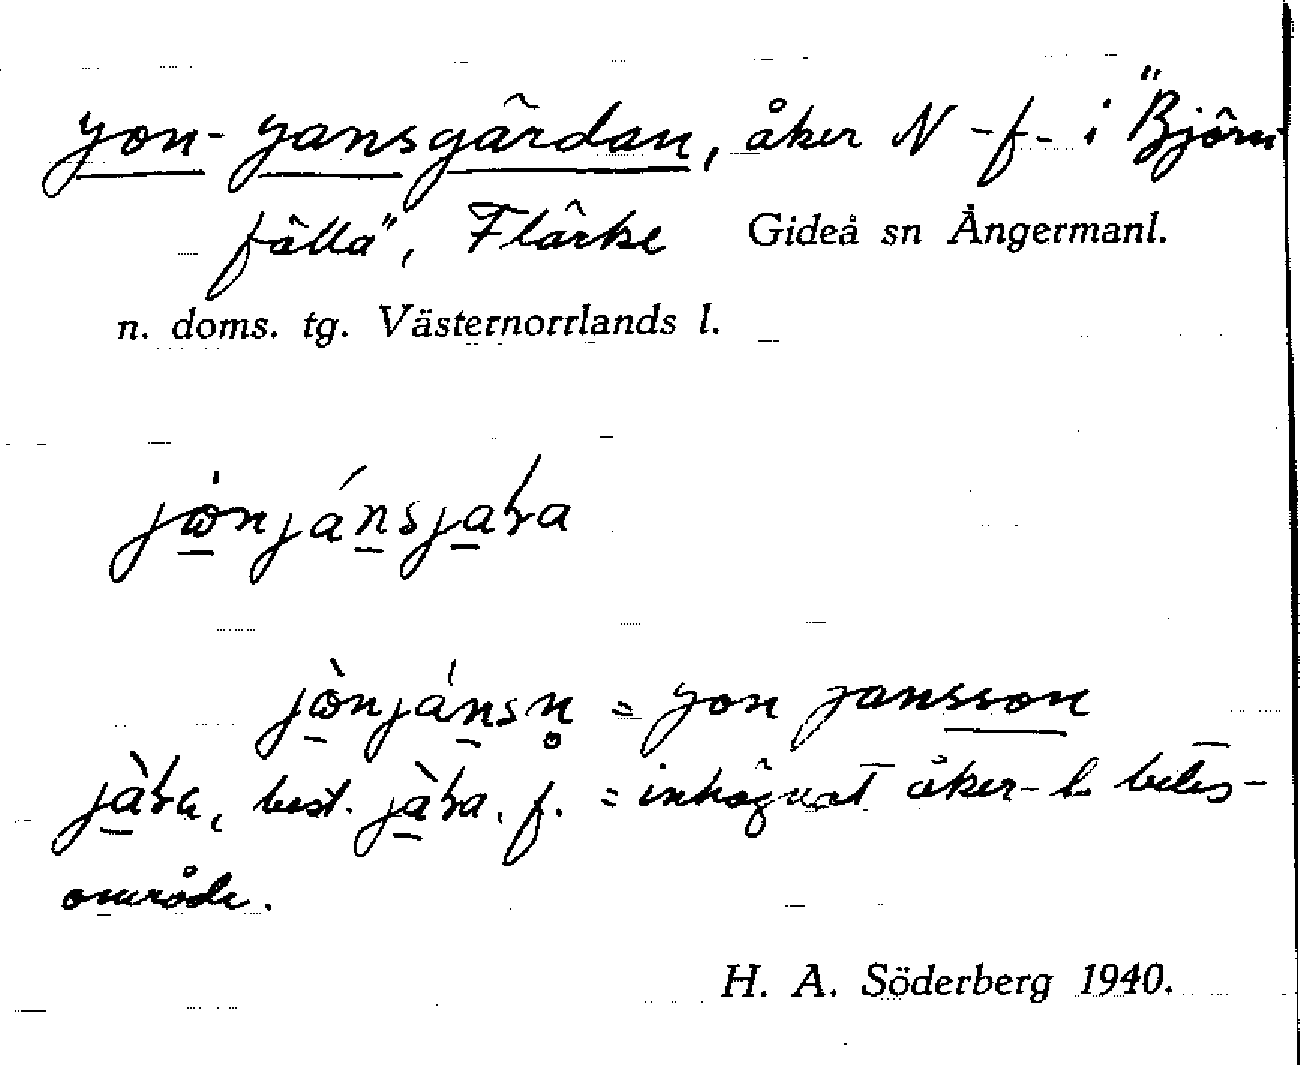 Jon-Jansgärdan, åker N -f- i "Björn
fälla", Flärke Gideå sn Ångermanl.
n. doms. tg. Västernorrlands l.
= Jon Jansson
best. f. = inhägnat åker- l. betes-
område.
H. A. Söderberg 1940.